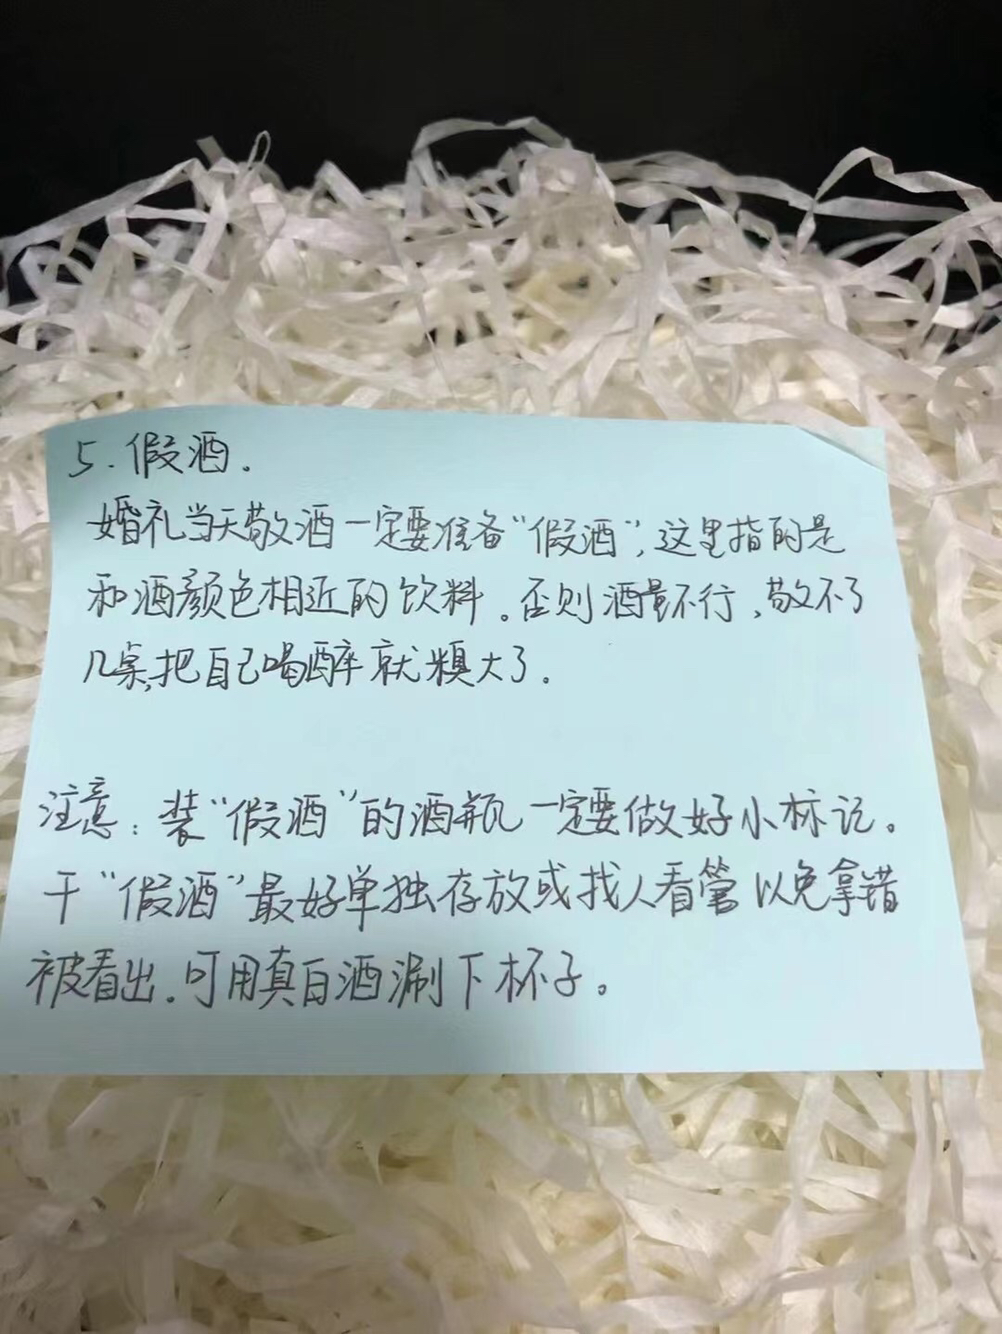 5. 假酒.
婚礼当天敬酒一定要准备“假酒”,这里指的是
和酒颜色相近的饮料。否则酒量不行,敬不了
几桌,把自己喝醉就糗大了。
注意:装“假酒”的酒瓶一定要做好小标记。
干“假酒”最好单独存放或找人看管以免拿错
被看出.可用真白酒涮下杯子。